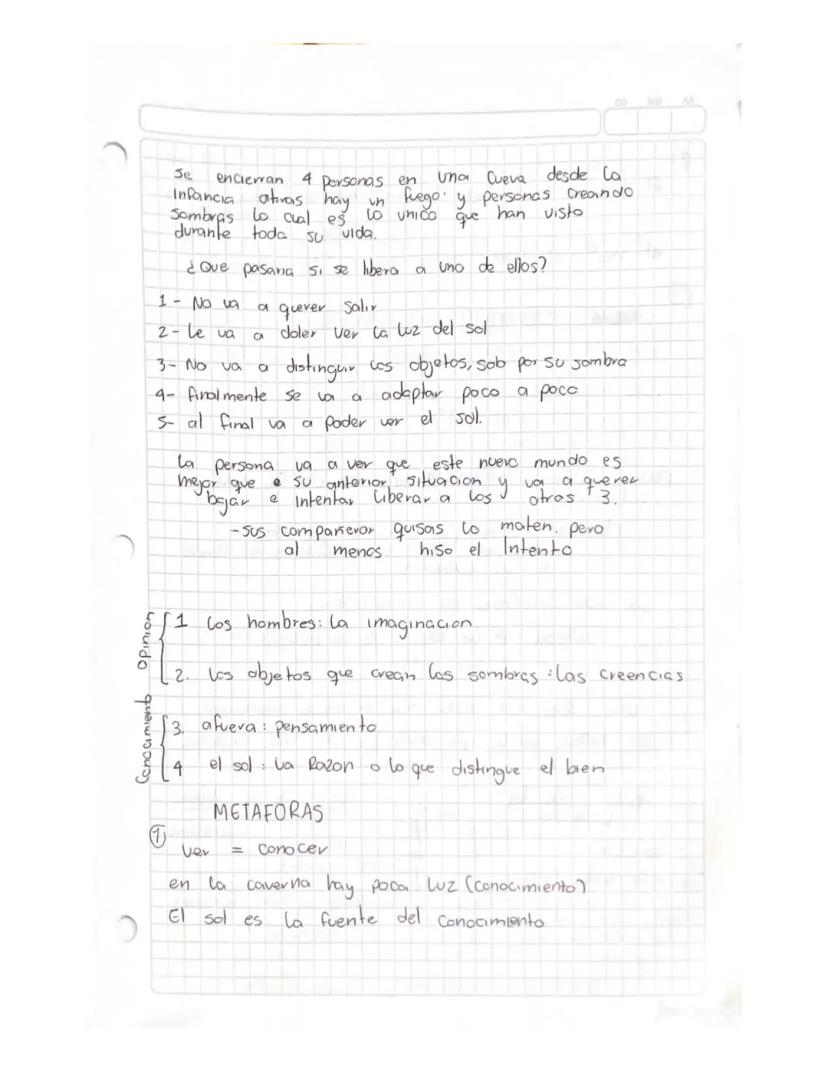 Se encierran 4 personas en una cueva desde la
Infancia atras hay un fuego y personas creando
sombras lo cual es lo unico que han visto
durante toda su vida.
¿Que pasaria si se libera a uno de ellos?
1 - No va a querer salir
2 - Le va a doler ver la luz del sol
3 - No va a distinguir los objetos, solo por su sombra
4 - finalmente se va a adaptar poco a poco
5 - al final va a poder ver el sol.
La persona va a ver que este nuevo mundo es
mejor que su anterior situacion y va a querer
bajar e intentar liberar a los otros 3.
- sus compañeros quisas lo maten. pero
al menos hiso el Intento
Opinion
1 Los hombres: La imaginacion
2. los objetos que crean las sombras: las creencias
Conocimiento
3. afuera: pensamiento
4 el sol: la Razon o lo que distingue el bien
METAFORAS
① ver = conocer
en la caverna hay poca luz (conocimiento)
El sol es la fuente del conocimiento